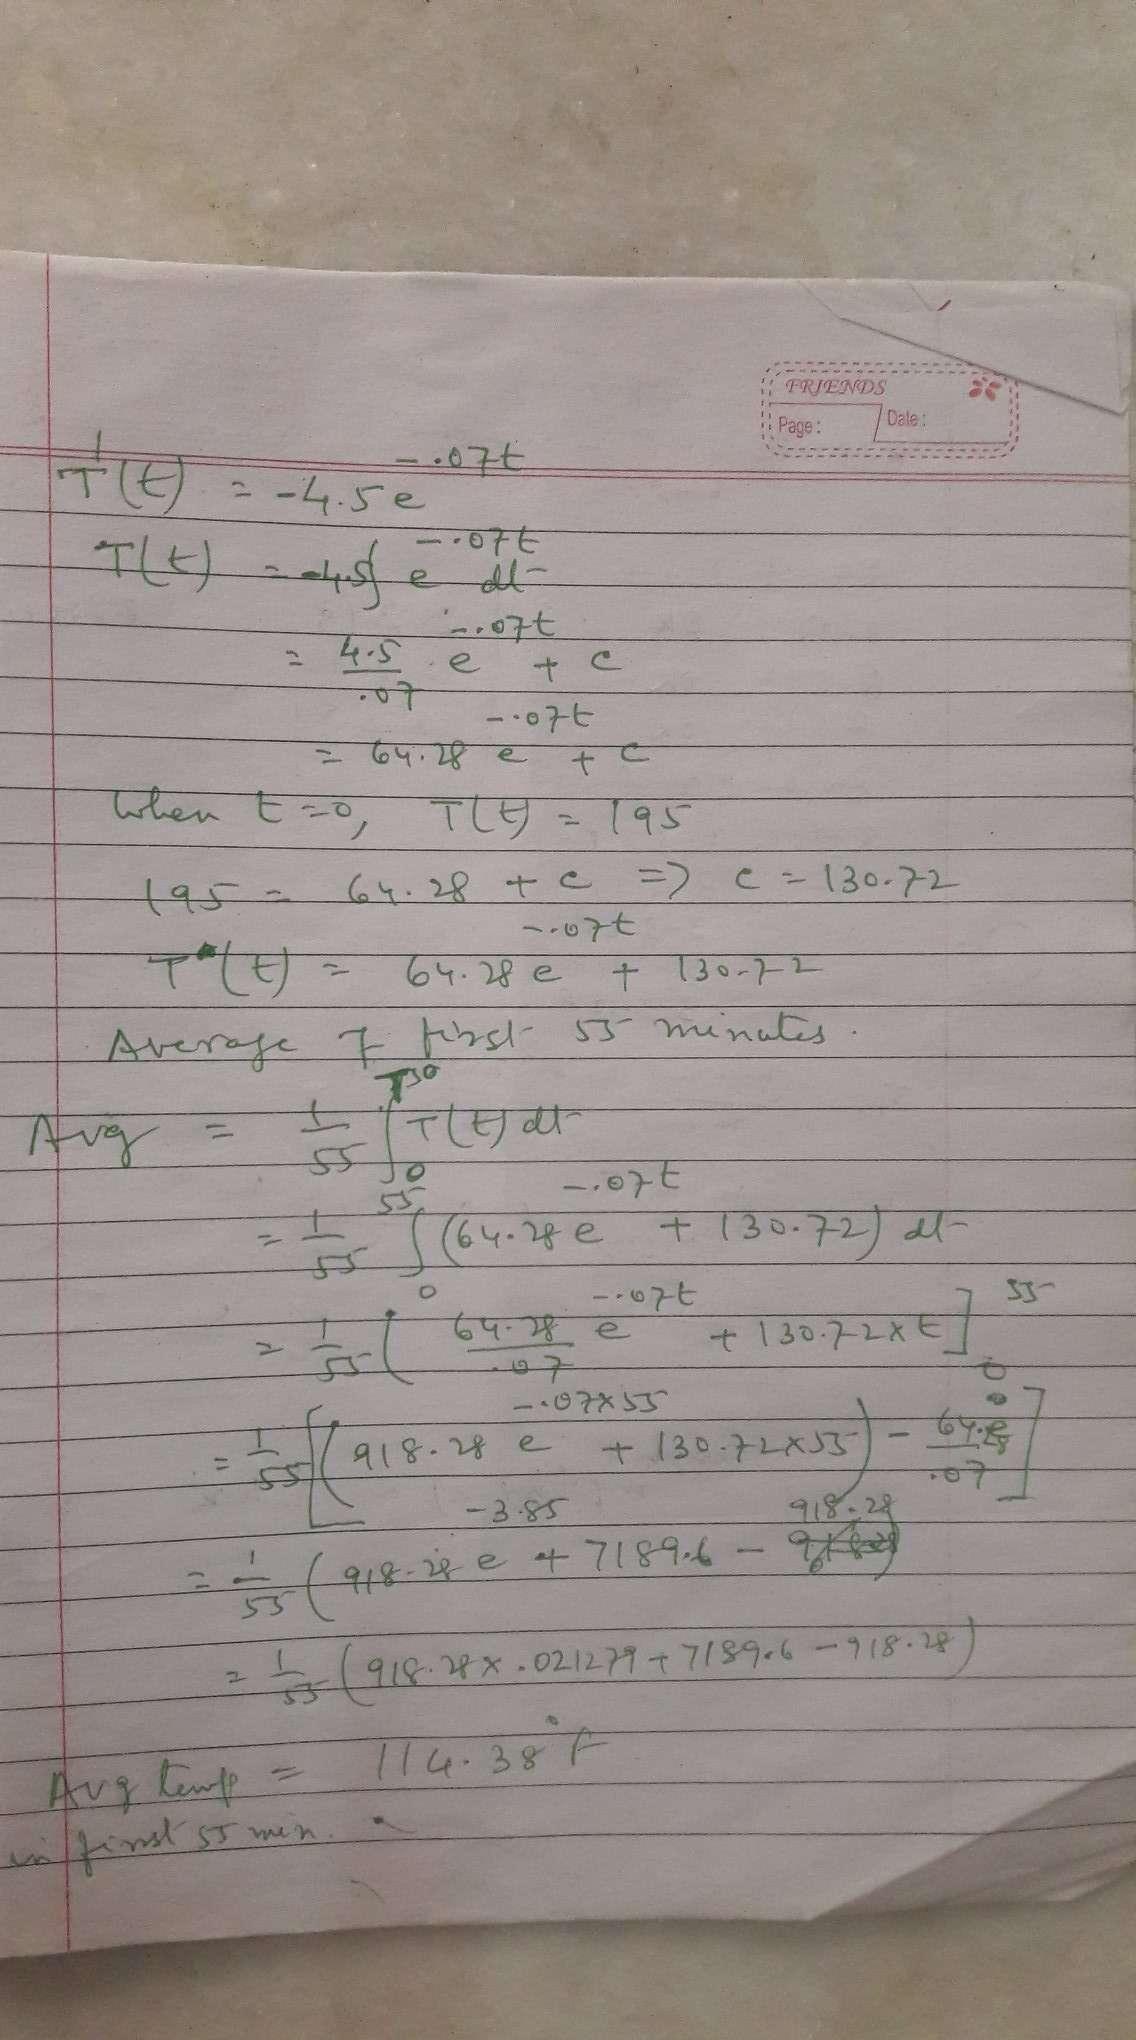 FRIENDS
Page: Date:
T'(t) = -4.5 e^{-.07t}
T(t) = -4.5∫ e^{-.07t} dt
= 4.5/.07 e^{-.07t} + c
= 64.28 e^{-.07t} + c
When t=0, T(t) = 195
195 = 64.28 + c => c = 130.72
T(t) = 64.28 e^{-.07t} + 130.72
Average of first 55 minutes.
Avg = 1/55 ∫_0 T(t) dt
= 1/55 ∫_0^{55} (64.28 e^{-.07t} + 130.72) dt
= 1/55 [ 64.28/.07 e^{-.07t} + 130.72 x t ]_0^{55}
= 1/55 [ (918.28 e^{-.07x55} + 130.72 x 55) - 64.28/.07 e^0 ]
= 1/55 ( 918.28 e^{-3.85} + 7189.6 - 918.28 )
= 1/55 ( 918.28 x .021279 + 7189.6 - 918.28 )
Avg temp = 114.38°F
in first 55 min.